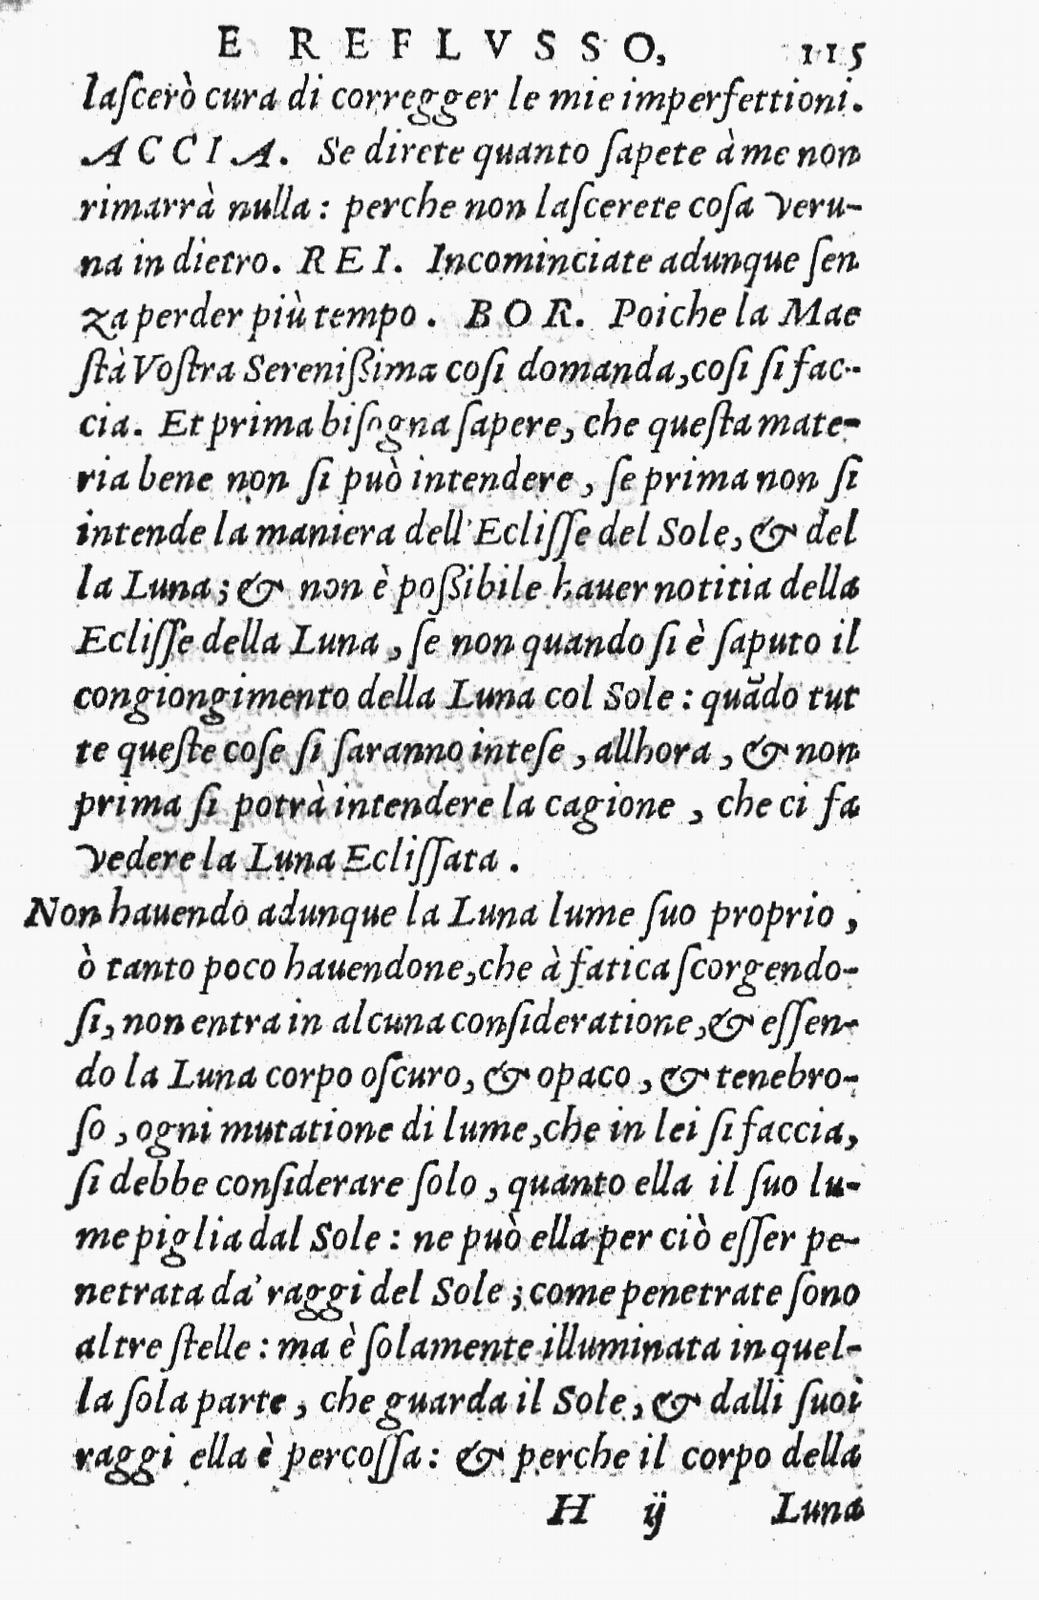 E REFLVSSO, 115
laſcerò cura di corregger le mie imperfettioni.
ACCIA. Se direte quanto ſapete à me non
rimarrà nulla: perche non laſcerete coſa veru-
na in dietro. REI. Incominciate adunque ſen
za perder più tempo. BOR. Poiche la Mae
ſtà Voſtra Serenißima coſi domanda, coſi ſi fac-
cia. Et prima biſogna ſapere, che queſta mate-
ria bene non ſi può intendere, ſe prima non ſi
intende la maniera dell'Ecliſſe del Sole, & del
la Luna; & non è poßibile hauer notitia della
Ecliſſe della Luna, ſe non quando ſi è ſaputo il
congiongimento della Luna col Sole: quãdo tut
te queſte coſe ſi ſaranno inteſe, allhora, & non
prima ſi potrà intendere la cagione, che ci fa
vedere la Luna Ecliſſata.
Non hauendo adunque la Luna lume ſuo proprio,
ò tanto poco hauendone, che à fatica ſcorgendo-
ſi, non entra in alcuna conſideratione, & eſſen-
do la Luna corpo oſcuro, & opaco, & tenebro-
ſo, ogni mutatione di lume, che in lei ſi faccia,
ſi debbe conſiderare ſolo, quanto ella il ſuo lu-
me piglia dal Sole: ne può ella per ciò eſſer pe-
netrata da' raggi del Sole; come penetrate ſono
altre ſtelle: ma è ſolamente illuminata in quel-
la ſola parte, che guarda il Sole, & dalli ſuoi
raggi ella è percoſſa: & perche il corpo della
H ij Luna